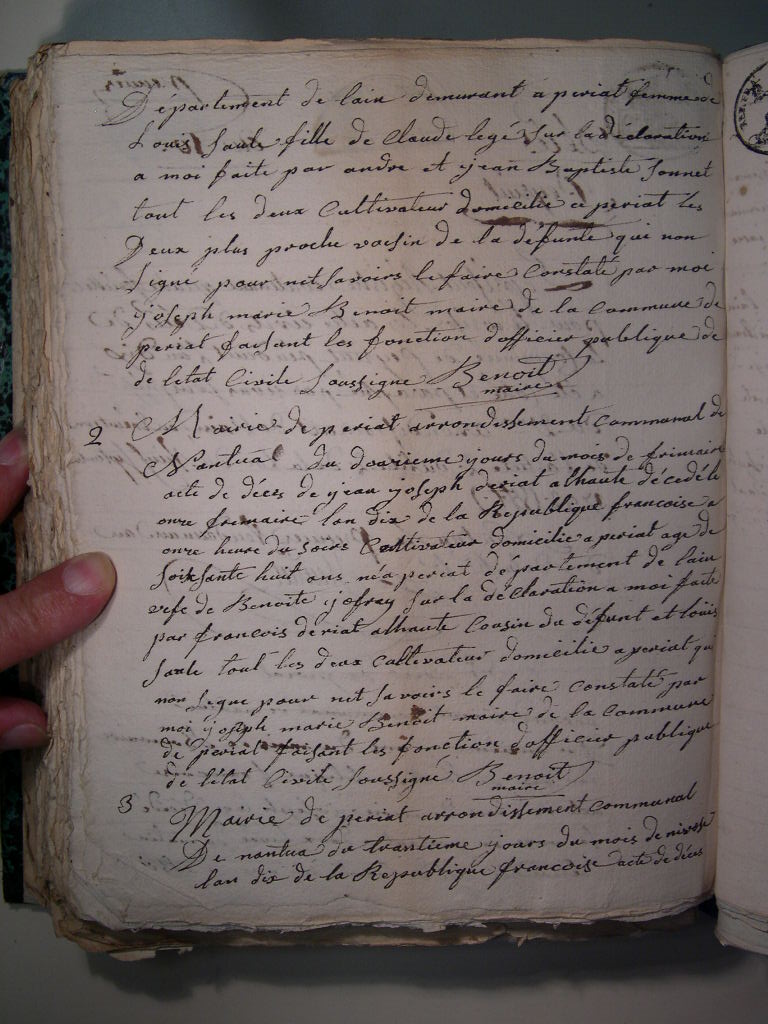 Département de lain demurant a periat femme de
Louis Saule fille de Claude legé sur la déclaration
a moi faite par andre et jean Baptiste Sonnet
tout les deux Cultivateur domicilie a periat les
Deux plus proche voisin de la défunte qui non
Signé pour net Savoirs le faire Constaté par moi
joseph marie Benoit maire de la Commune de
periat faisant les fonction d'officier publique de
de letat Civile Soussigne Benoit
maire
2 Mairie de periat arrondissement Communal de
Nantua du douzieme jours du mois de frimaire
acte de déces de jean joseph deriat alhaute décedé le
onze fremaire lan dix de la Republique francoise a
onze heure du Soirs Cultivateur domicilie a periat age de
Soixsante huit ans né a periat département de lain
vefe de Benoite jofray Sur la déclaration a moi faite
par francois deriat alhaute Cousin du défunt et louis
Saule tout les deux Cultivateur domicilie a periat qui
non Segne pour net Savoirs le faire Constaté par
moi joseph marie Benoit maire de la Commune
de periat faisant les fonction d'officier publique
de l'état Civile Soussigné Benoit
maire
3 Mairie de periat arrondissement Communal
De nantua du trantieme jours du mois de nivose
lan dix de la Republique francoise acte de déces